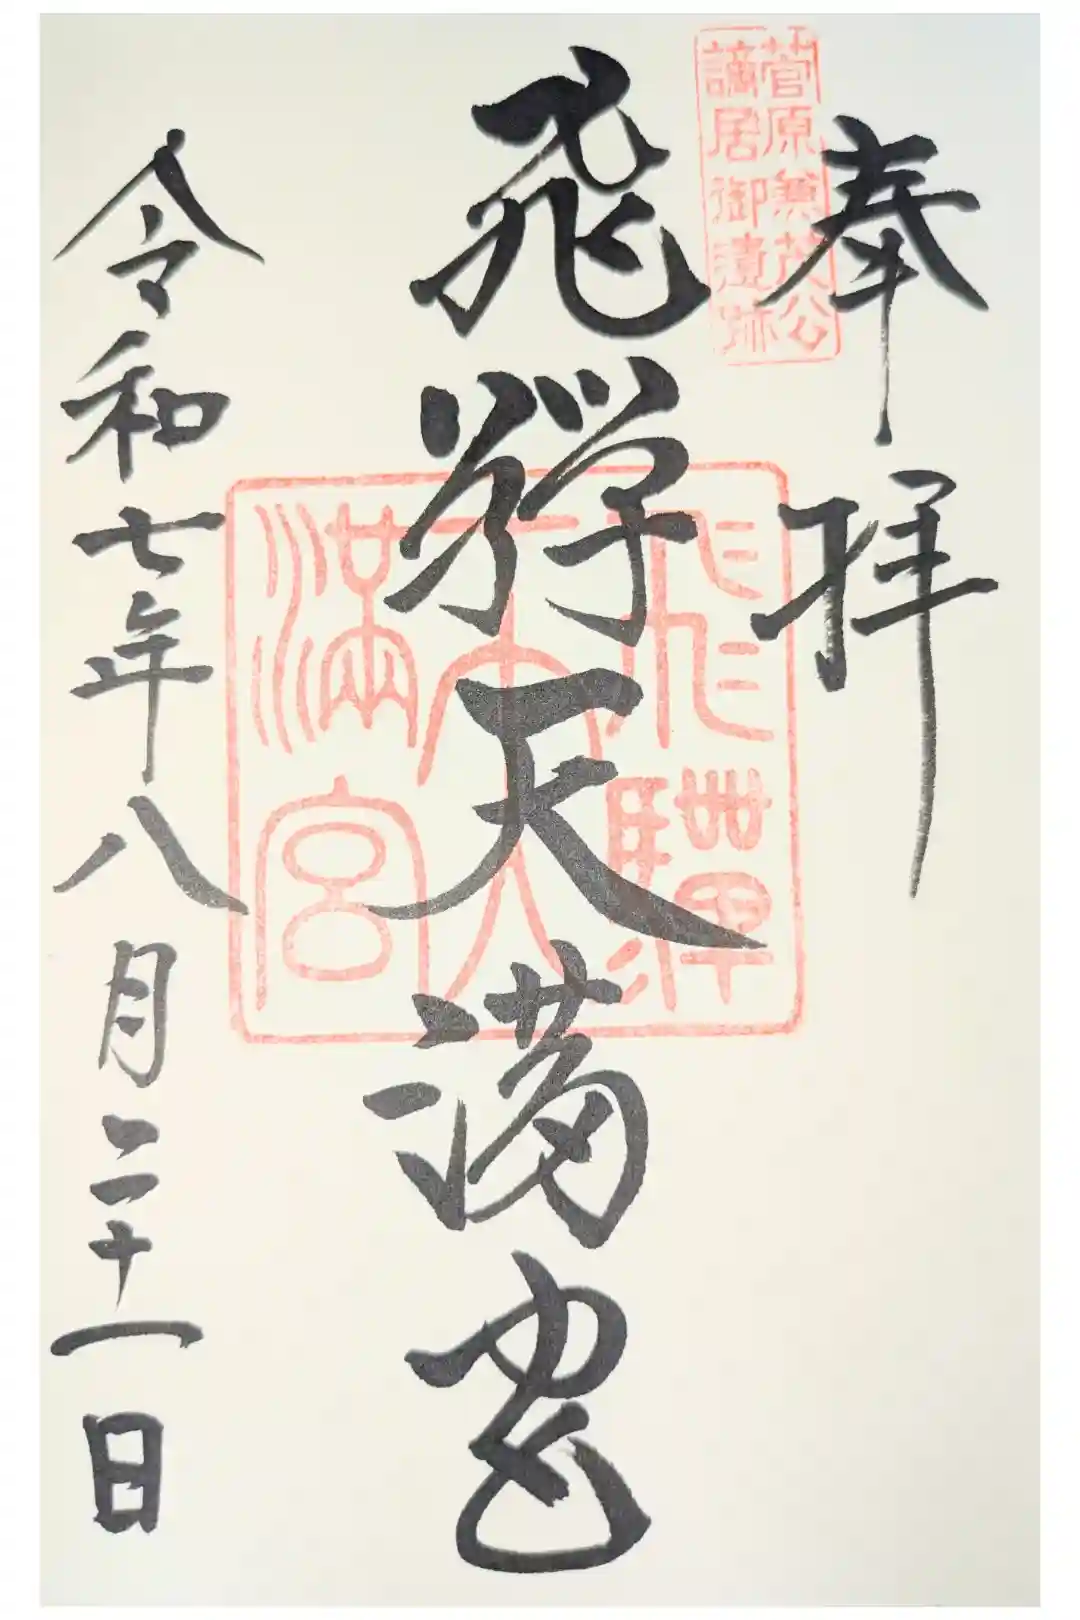 奉拝
菅原兼茂公
謫居御遺跡
飛騨天満宮
飛驒
天
満宮
令和七年八月二十一日